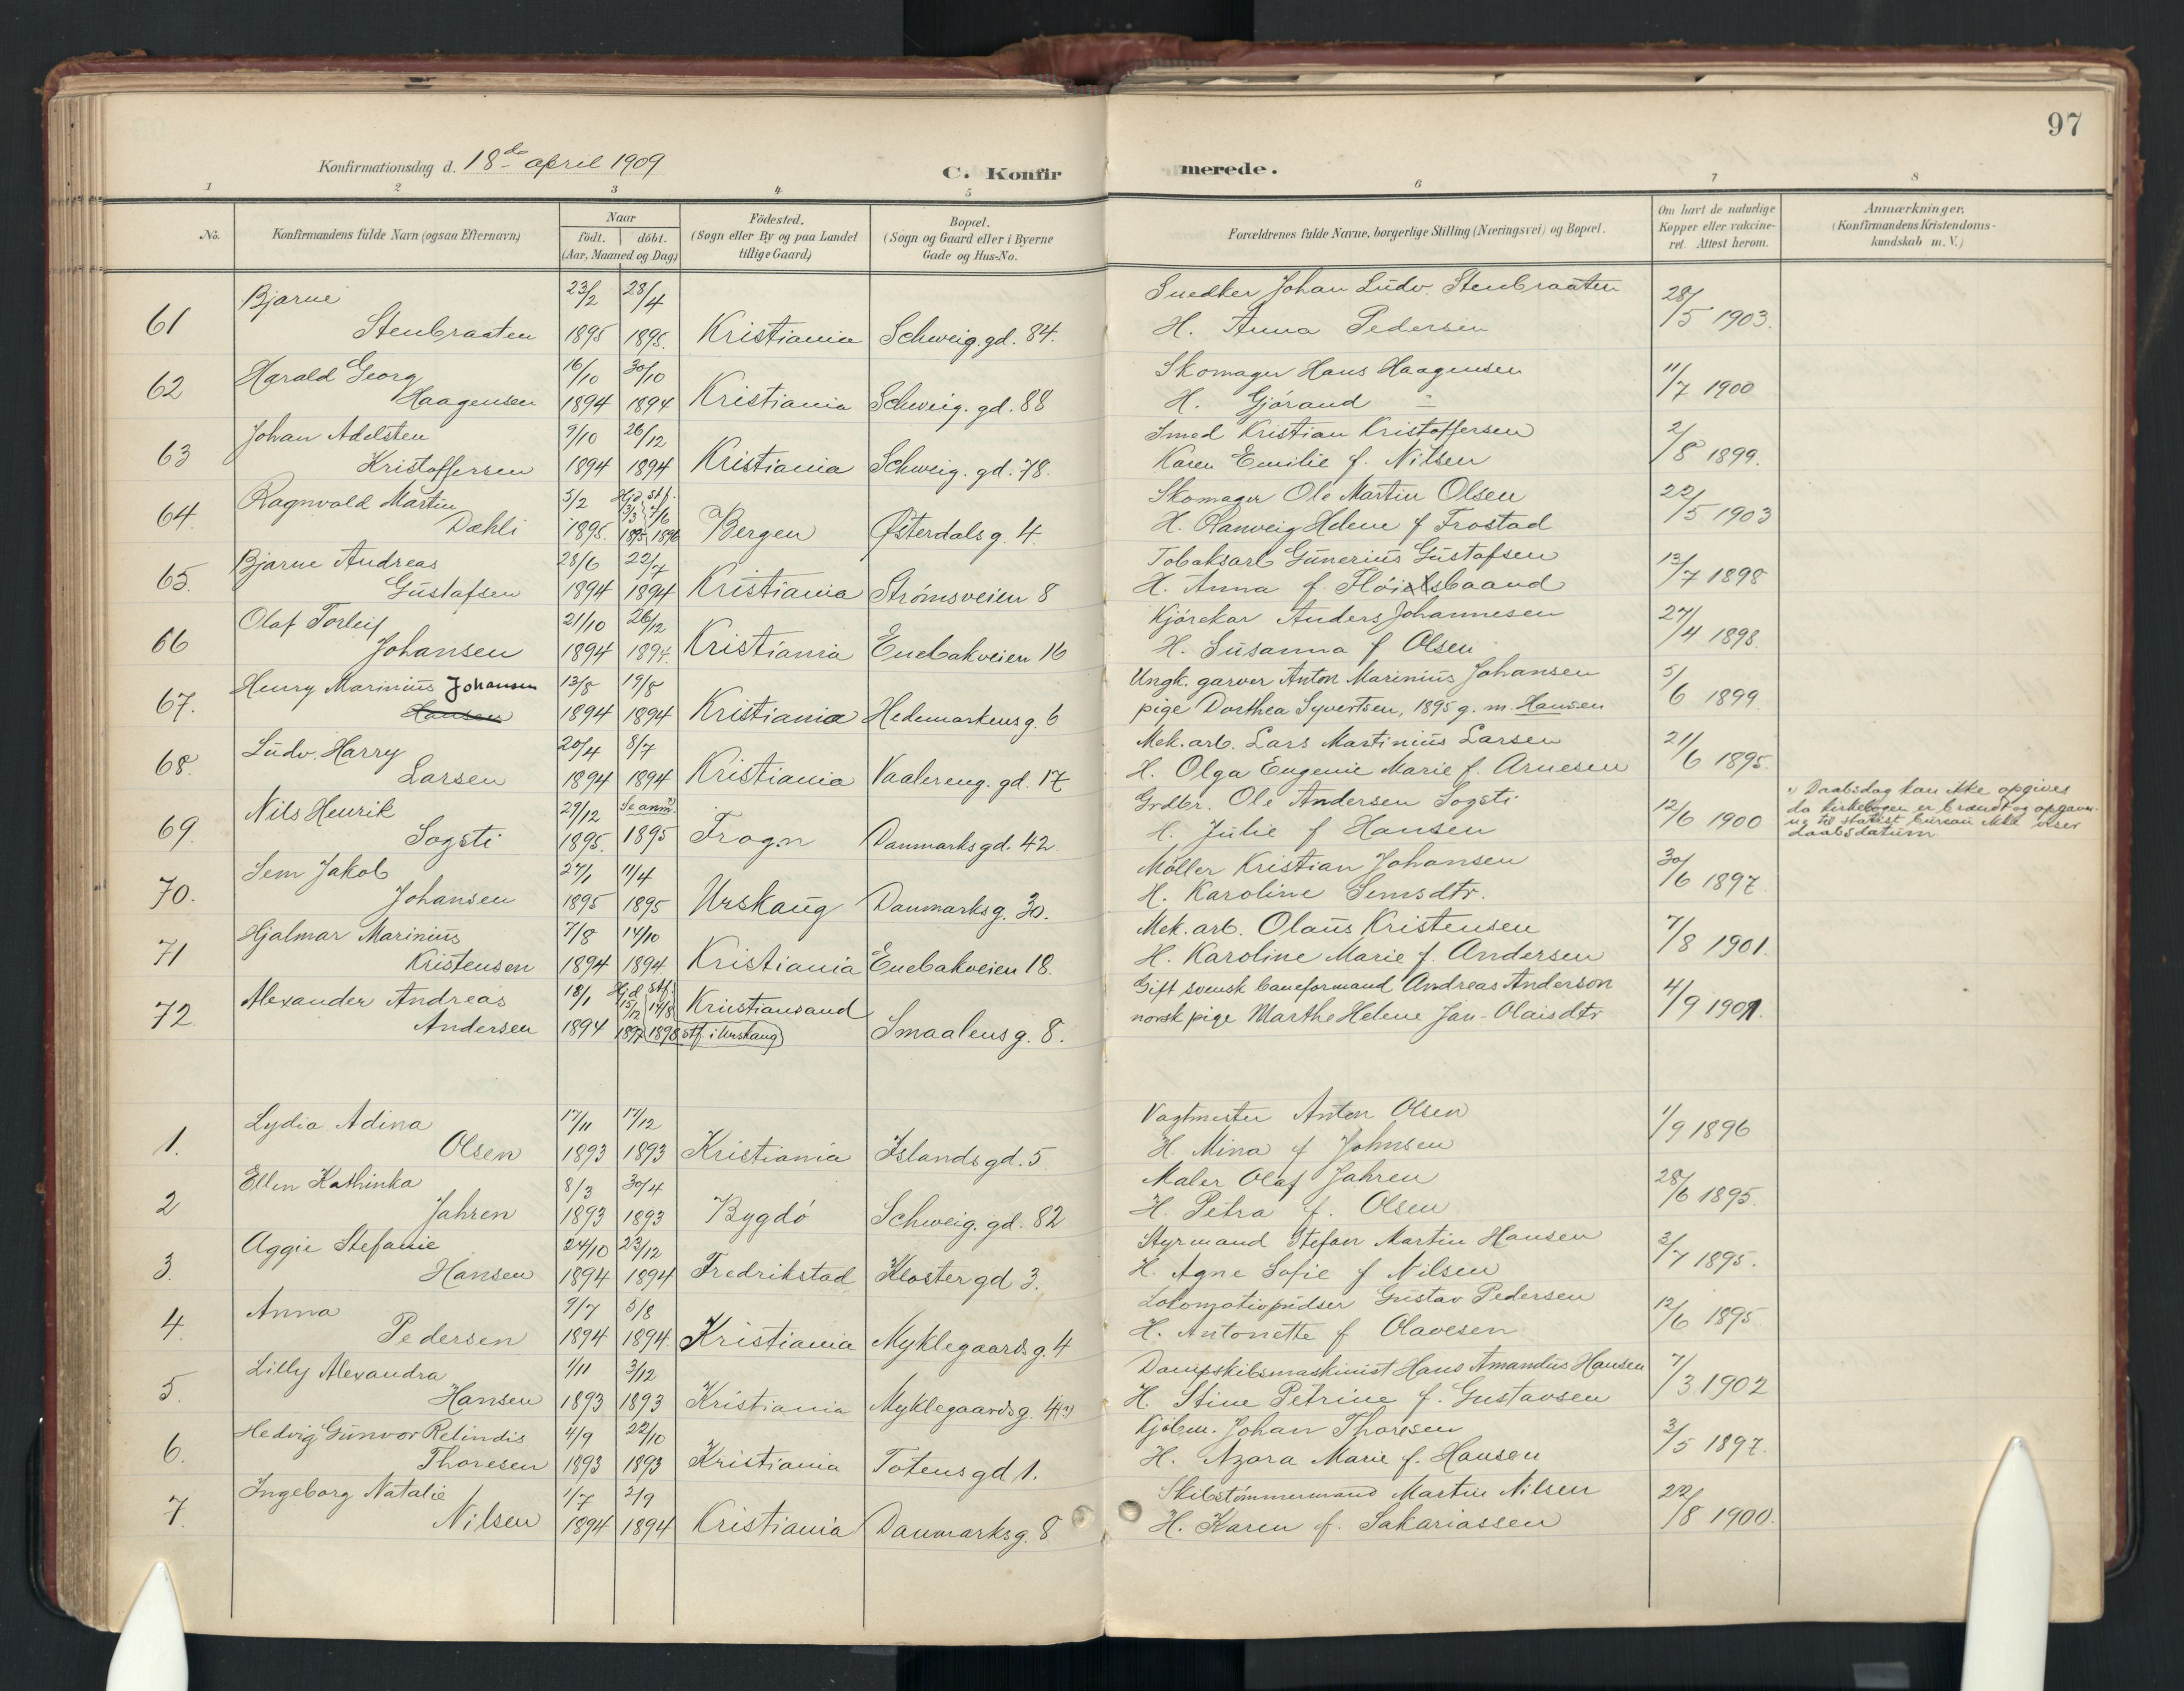 97
Konfirmationsdag d. 18de april 1909
C. Konfirmerede.
1 2 3 4 5 6 7 8
No.
Konfirmandens fulde Navn (ogsaa Efternavn)
Naar
født. | döbt.
(Aar, Maaned og Dag)
Födested.
(Sogn eller By og paa Landet
tillige Gaard)
Bopæl.
(Sogn og Gaard eller i Byerne
Gade og Hus-No.
Forældrenes fulde Navne, borgerlige Stilling (Næringsvei) og Bopæl.
Om havt de naturlige
Kopper eller vakcine-
ret. Attest herom.
Anmærkninger.
(Konfirmandens Kristendoms-
kundskab m. V.)
Bjarne 23/2 28/4 Snedker Johan Ludv. Stenbraaten 28/5 1903.
61 Stenbraaten 1895 1895. Kristiania Schweig. gd. 84. H. Anna Pedersen
Harald Georg 16/10 30/10 Skomager Hans Haagensen 11/7 1900
62 Haagensen 1894 1894 Kristiania Schweig. gd. 88 H. Gjörand "
Johan Adelsten 9/10 26/12 Smed Kristian Kristoffersen 2/8 1899.
63 Kristoffersen 1894 1894 Kristiania Schweig. gd. 78. Karen Emilie f. Nilsen
Ragnvald Martin 5/2 Hjd. 3/3 stf. 7/6 Skomager Ole Martin Olsen 22/5 1903
64. Dæhli 1895. 1895 1896 Bergen Østerdalsg. 4. H. Ranveig Helene f Frostad
Bjarne Andreas 28/6 22/7 Tobaksarb Gunerius Gustafsen 13/7 1898
65. Gustafsen 1894 1894 Kristiania Strömsveien 8 H. Anna f.
Olaf Torleif 21/10 26/12 Kjörekar Anders Johannesen 27/4 1898.
66 Johansen 1894 1894. Kristiania Enebakveien 16 H. Susanna f Olsen
Henry Marinius Johansen 13/8 19/8 Ungk. garver Anton Marinius Johansen 5/6 1899.
67. Hansen 1894 1894 Kristiania Hedemarkensg. 6 pige Dorthea Syvertsen, 1895 g. m. Hansen
Ludv. Harry 20/4 8/7 Mek. arb. Lars Martinius Larsen 21/6 1895.
68. Larsen 1894 1894 Kristiania Vaalereng. gd. 17 H. Olga Eugenie Marie f. Arnesen
Nils Henrik 29/12 Se anm. Grdbr. Ole Andersen Sogsti 12/6 1900
69. Sogsti 1895. 1895 Frogn Danmarksgd. 42 H. Julie f Hansen
Daabsdag kan ikke opgives
da kirkebogen er brændt og opgaver-
ne til statist. bureau ikke viser
daabsdatum.
Sem Jakob 27/1 11/4 Möller Kristian Johansen 30/6 1897.
70. Johansen 1895 1895 Urskaug Danmarksg. 30. H. Karoline Semsdtr.
Hjalmar Marinius 7/8 14/10 Mek. arb. Olaus Kristensen 7/8 1901.
71 Kristensen 1894 1894 Kristiania Enebakveien 18. H. Karoline Marie f. Andersen
Alexander Andreas 18/1 Hjd. 15/12 stf. 14/8 Kristiansand Gift svensk baneformand Andreas Anderson 4/9 1901.
72 Andersen 1894 1897 1898 stf. i Urskaug Smaalensg. 8. norsk pige Marthe Helene Jan-Olaisdtr
Lydia Adina 17/11 17/12 Vagtmester Anton Olsen 1/9 1896
1. Olsen 1893 1893 Kristiania Islandsgd. 5 H. Mina f Johnsen
Ellen Kathinka 8/3 30/4 Maler Olaf Jahren 28/6 1895.
2 Jahren 1893 1893 Bygdö Schweig. gd. 82 H. Petra f. Olsen
Aggie Stefanie 24/10 23/12 Styrmand Stefan Martin Hansen 2/7 1895.
3. Hansen 1894 1894 Fredrikstad Klostergd 3. H. Agne Sofie f Nilsen
Anna 9/7 5/8 Lokomotivpudser Gustav Pedersen 12/6 1895
4. Pedersen 1894 1894. Kristiania Myklegaardsg. 4 H. Antonette f Olavesen
Lilly Alexandra 1/11 3/12 Dampskibsmaskinist Hans Amandus Hansen 7/3 1902
5. Hansen 1893 1893 Kristiania Myklegaardsg. 4 H. Stine Petrine f. Gustavsen
Hedvig Gunvor Relindis 4/9 22/10 Kjöbm. Johan Thoresen 3/5 1897.
6. Thoresen 1893 1893 Kristiania Totensgd 1. H. Azora Marie f. Hansen
Ingeborg Natalie 1/7 2/9 Skibstömmermand Martin Nilsen 22/8 1900.
7. Nilsen 1894 1894 Kristiania Danmarksg. 8 H. Karen f. Sakariassen